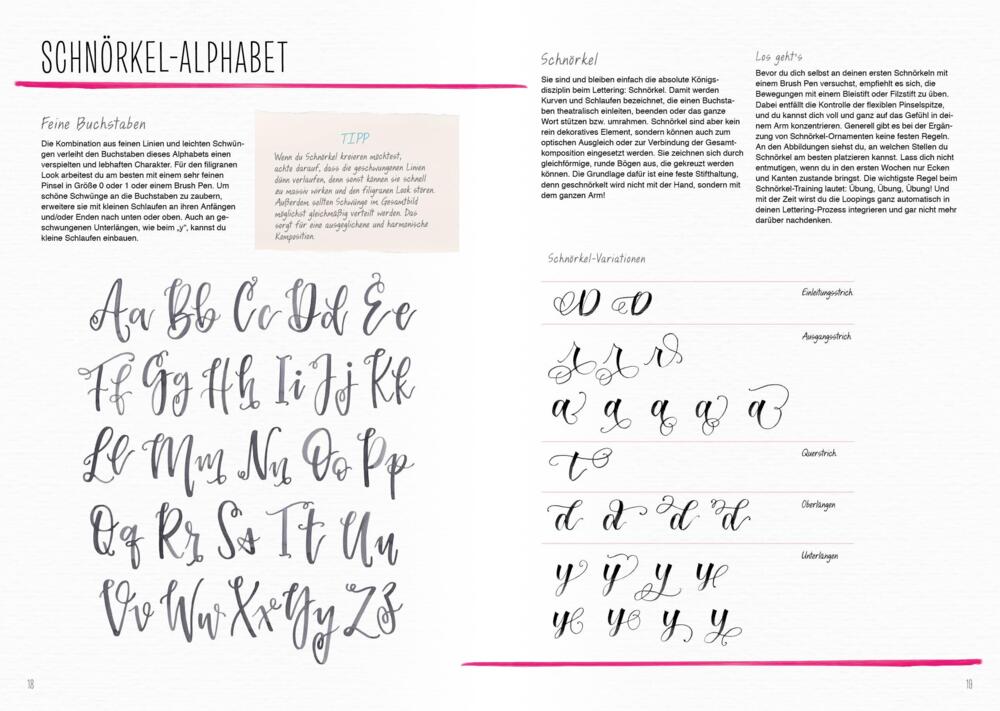 SCHNÖRKEL-ALPHABET
Feine Buchstaben
Die Kombination aus feinen Linien und leichten Schwün-
gen verleiht den Buchstaben dieses Alphabets einen
verspielten und lebhaften Charakter. Für den filigranen
Look arbeitest du am besten mit einem sehr feinen
Pinsel in Größe 0 oder 1 oder einem Brush Pen. Um
schöne Schwünge an die Buchstaben zu zaubern,
erweitere sie mit kleinen Schlaufen an ihren Anfängen
und/oder Enden nach unten oder oben. Auch an ge-
schwungenen Unterlängen, wie beim „y“, kannst du
kleine Schlaufen einbauen.
TIPP
Wenn du Schnörkel kreieren möchtest,
achte darauf, dass die geschwungenen Linien
dünn verlaufen, denn sonst können sie schnell
zu massiv wirken und den filigranen Look stören.
Außerdem sollten Schwünge im Gesamtbild
möglichst gleichmäßig verteilt werden. Das
sorgt für eine ausgeglichene und harmonische
Komposition.
Aa Bb Cc Dd Ee
Ff Gg Hh Ii Jj Kk
Ll Mm Nn Oo Pp
Qq Rr Ss Tt Uu
Vv Ww Xx Yy Zz
18
Schnörkel
Sie sind und bleiben einfach die absolute Königs-
disziplin beim Lettering: Schnörkel. Damit werden
Kurven und Schlaufen bezeichnet, die einen Buchsta-
ben theatralisch einleiten, beenden oder das ganze
Wort stützen bzw. umrahmen. Schnörkel sind aber kein
rein dekoratives Element, sondern können auch zum
optischen Ausgleich oder zur Verbindung der Gesamt-
komposition eingesetzt werden. Sie zeichnen sich durch
gleichförmige, runde Bögen aus, die gekreuzt werden
können. Die Grundlage dafür ist eine feste Stifthaltung,
denn geschnörkelt wird nicht mit der Hand, sondern mit
dem ganzen Arm!
Los geht's
Bevor du dich selbst an deinen ersten Schnörkeln mit
einem Brush Pen versuchst, empfiehlt es sich, die
Bewegungen mit einem Bleistift oder Filzstift zu üben.
Dabei entfällt die Kontrolle der flexiblen Pinselspitze,
und du kannst dich voll und ganz auf das Gefühl in dei-
nem Arm konzentrieren. Generell gibt es bei der Ergän-
zung von Schnörkel-Ornamenten keine festen Regeln.
An den Abbildungen siehst du, an welchen Stellen du
Schnörkel am besten platzieren kannst. Lass dich nicht
entmutigen, wenn du in den ersten Wochen nur Ecken
und Kanten zustande bringst. Die wichtigste Regel beim
Schnörkel-Training lautet: Übung, Übung, Übung! Und
mit der Zeit wirst du die Loopings ganz automatisch in
deinen Lettering-Prozess integrieren und gar nicht mehr
darüber nachdenken.
Schnörkel-Variationen
D D Einleitungsstrich
r r r Ausgangsstrich
a a a a a
t Querstrich
d d d d Oberlängen
y y y y Unterlängen
y y y y
19